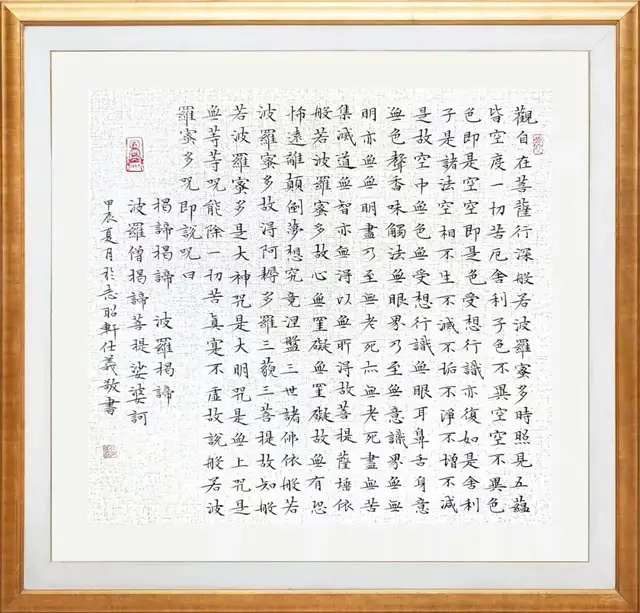 觀自在菩薩行深般若波羅蜜多時照見五蘊
皆空度一切苦厄舍利子色不異空空不異色
色即是空空即是色受想行識亦復如是舍利
子是諸法空相不生不滅不垢不淨不增不減
是故空中無色無受想行識無眼耳鼻舌身意
無色聲香味觸法無眼界乃至無意識界無無
明亦無無明盡乃至無老死亦無老死盡無苦
集滅道無智亦無得以無所得故菩提薩埵依
般若波羅蜜多故心無罣礙無罣礙故無有恐
怖遠離顛倒夢想究竟涅盤三世諸佛依般若
波羅蜜多故得阿耨多羅三藐三菩提故知般
若波羅蜜多是大神咒是大明咒是無上咒是
無等等咒能除一切苦真實不虛故說般若波
羅蜜多咒即說咒曰
揭諦揭諦 波羅揭諦
波羅僧揭諦菩提娑婆訶
甲辰夏月於志昭軒仕義敬書